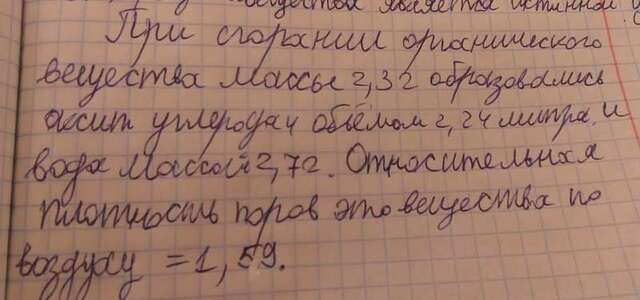 вещества является истинной
При сгорании органического
вещества массы 2,3г образовались
оксит углерода 4 объёмом 2,24 литра и
вода массой 2,7г. Относительная
плотность поров это вещества по
воздуху = 1,59.